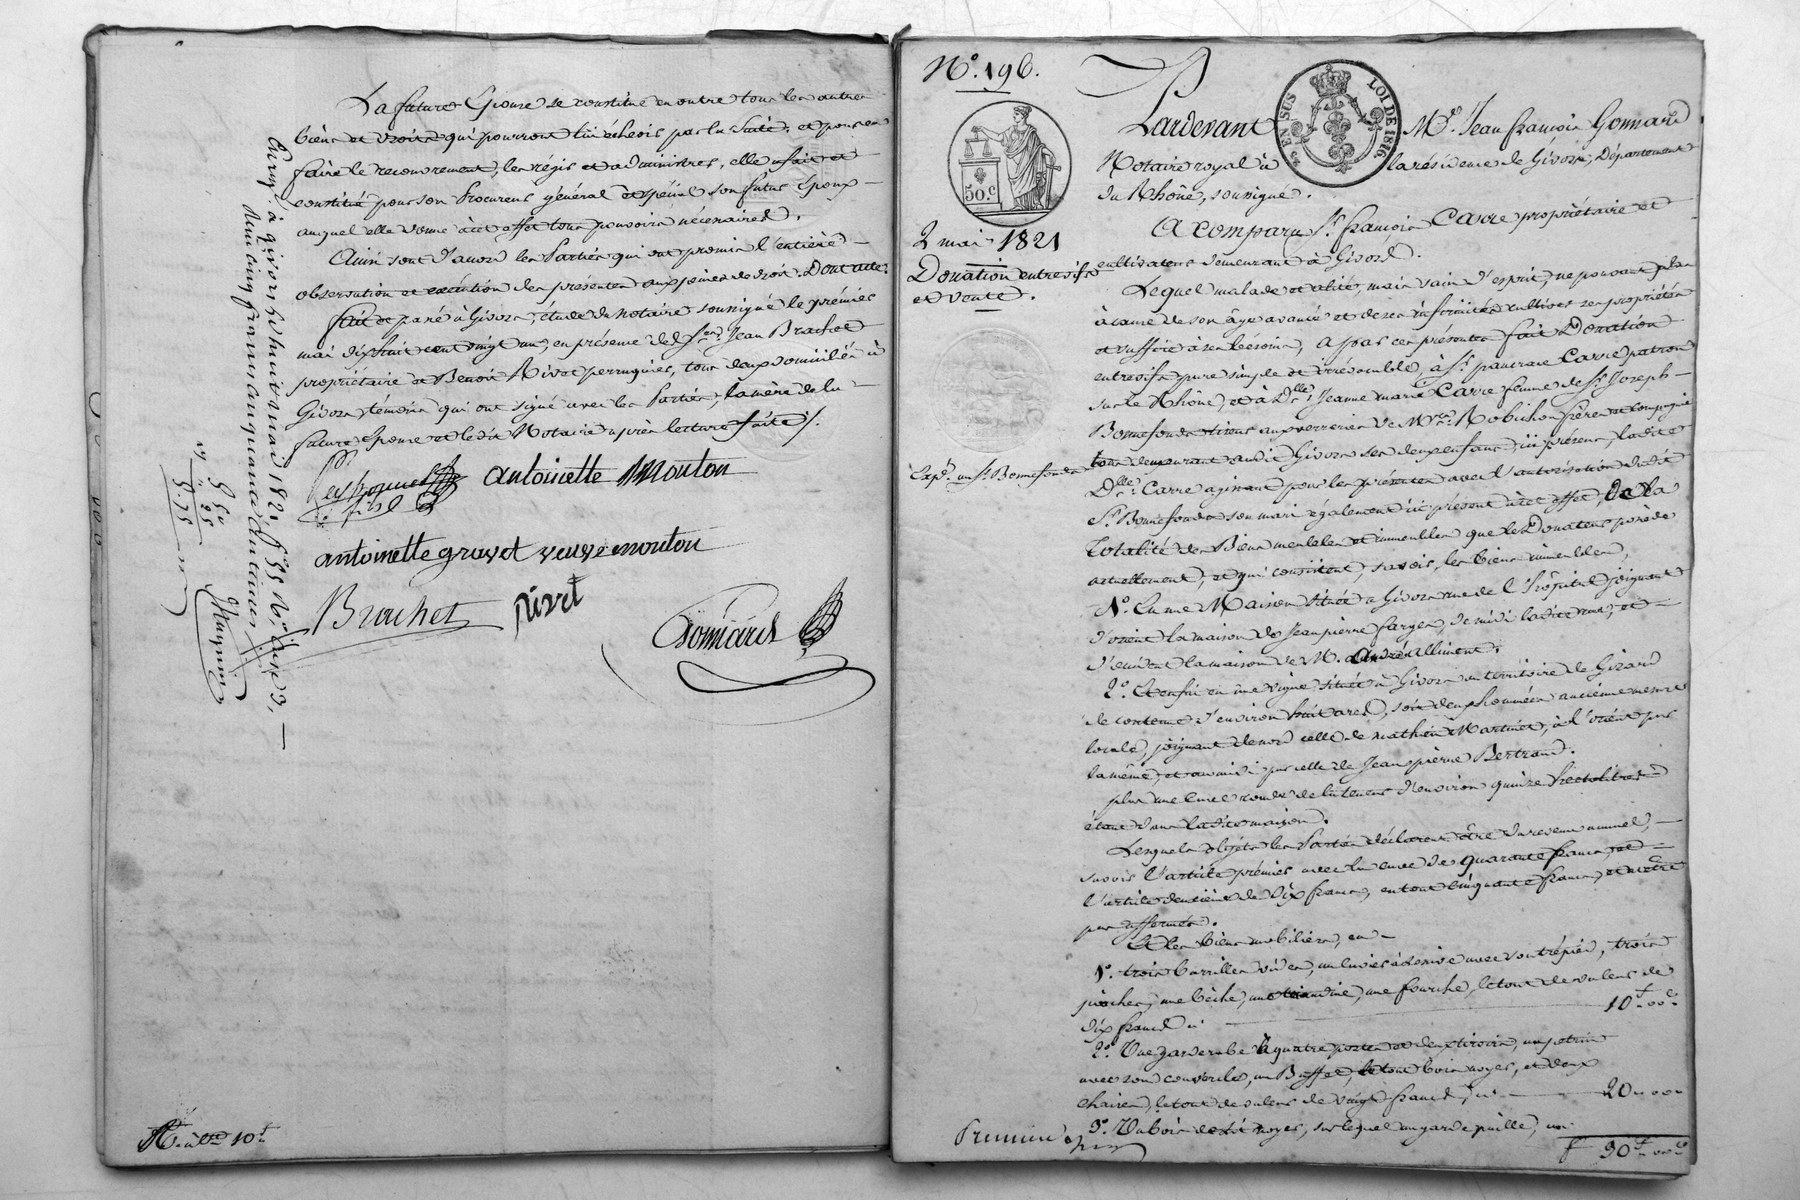 La future Epouse se constitue en outre tous les autres
biens et droits qui pourront lui échéoir par la suite, et pour en
faire le recouvrement, les régir et administrer, elle fait et
constitue pour son Procureur général et spécial son futur Epoux
auquel elle donne à cet effet tous pouvoirs nécessaires.
Ainsi sont d'accord les Parties qui ont promis l'entière
observation et exécution des présentes aux peines de droit. Dont acte.
fait et passé à Givors, étude du notaire soussigné le premier
mai dix huit cent vingt un, en présence de Srs. Jean Brachet
propriétaire et Benoit Rivet perruquier, tous deux domiciliés à
Givors témoins qui ont signé avec les Parties, la mère de la
future Epouse et le dit Notaire après lecture faite /.
antoinette Mouton
fils
antoinette gravet veuve mouton
Brachet rivet
Gonnard
Enregé. à givors le huit mai 1821 fo. 55 Ro. Case 3,
Reçu cinq francs cinquante centimes
5 50
55
Rôle 10f
No. 196.
50 c.
2 mai 1821
Donation entrevifs
et vente.
Expé. au Sr. Bonnefonds
EN SUS LOI DE 1816
Pardevant Me. Jean françois Gonnard
Notaire royal à la résidence de Givors, Département
du Rhône, soussigné.
A comparu Sr. françois Carre propriétaire et
cultivateur demeurant à Givors.
Lequel malade et alité, mais sain d'esprit, ne pouvant plus
à cause de son âge avancé et de ses infirmités cultiver ses propriétés
et suffire à ses besoins, a par ces présentes fait Donation
entrevifs pure simple et irrévocable, à Sr. pancrace Carre patron
sur le Rhône, et à Dlle. Jeanne marie Carre femme de Sr. Joseph
Bonnefonds tiseur aux verreries de Mrs. Robichon frères et compagnie
tous demeurant audit Givors ses deux enfans, ici présens, ladite
Dlle. Carre agissant pour les présentes avec l'autorisation dudit
Sr. Bonnefonds son mari également ici présent à cet effet, De la
totalité des Biens meubles et immeubles que le Donateur possède
actuellement, et qui consistent, savoir, les biens immeubles,
1o. En une Maison située à Givors rue de l'Hôpital joignant
d'orient la maison de Jean pierre farges, de midi ladite rue, et
d'occident la maison de M. andré alliment.
2o. Et enfin en une vigne située à Givors au territoire de Gizard
de contenue d'environ huit ares, soit deux hommées ancienne mesure
locale, joignant de nord celle de mathieu Martinet, à l'orient par
la même, et au midi par celle de Jean pierre Bertrand.
plus une cuve ronde de la teneur d'environ quinze hectolitres
étant dans ladite maison.
Lesquels objets les Parties déclarent être du revenu annuel,
savoir l'article premier avec la cuve de quarante francs, et
l'article deuxième de dix francs, en tout cinquante francs, et n'être
pas affermés.
Et les biens mobiliers, en
1o. trois barrilles vides, un cuvier à lessive avec son trépied, trois
pioches, une bêche, une, une fourche, le tout de valeur de
dix francs ci 10f. 00c.
2o. Une garderobe à quatre portes et deux tiroirs, un petrin
avec son couvercle, un Buffet, le tout bois noyer, et deux
chaises, le tout de valeur de vingt francs, ci 20. 00
3o. Un bois de lit noyer, sur lequel un garde paille, un
f 30f. 00c
Premier